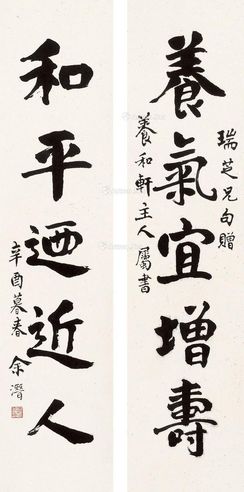 養氣宜增壽
瑞芝兄句贈
養和軒主人屬書
和平迺近人
辛酉暮春 余潛